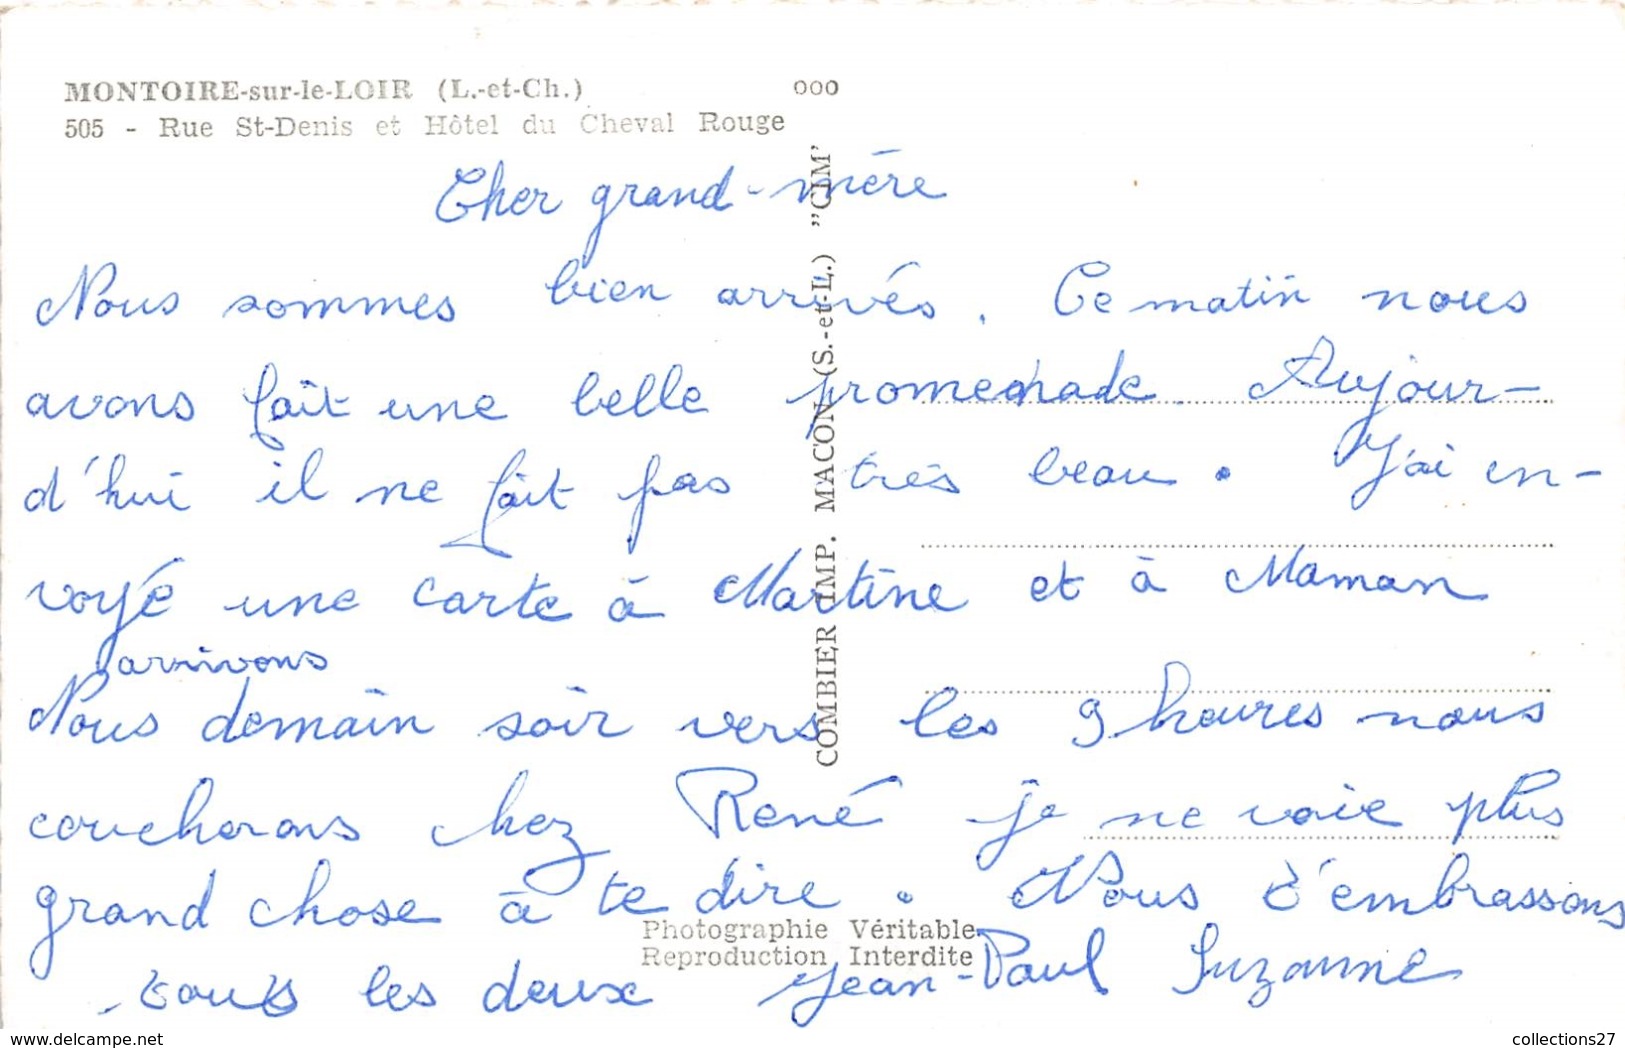 MONTOIRE-sur-le-LOIR (L.-et-Ch.)
ooo
505 - Rue St-Denis et Hôtel du Cheval Rouge
Cher grand-mère
Nous sommes bien arrivés. Ce matin nous
avons fait une belle promenade. Aujour-
d'hui il ne fait pas très beau. J'ai en-
voyé une carte à Martine et à Maman
arrivons
Nous demain soir vers les 9 heures nous
coucherons chez René je ne voie plus
grand chose à te dire. Nous t'embrassons
tous les deux Jean-Paul Suzanne
COMBIER IMP. MACON (S.-et-L.) "CIM"
Photographie Véritable
Reproduction Interdite
www.delcampe.net
collections27